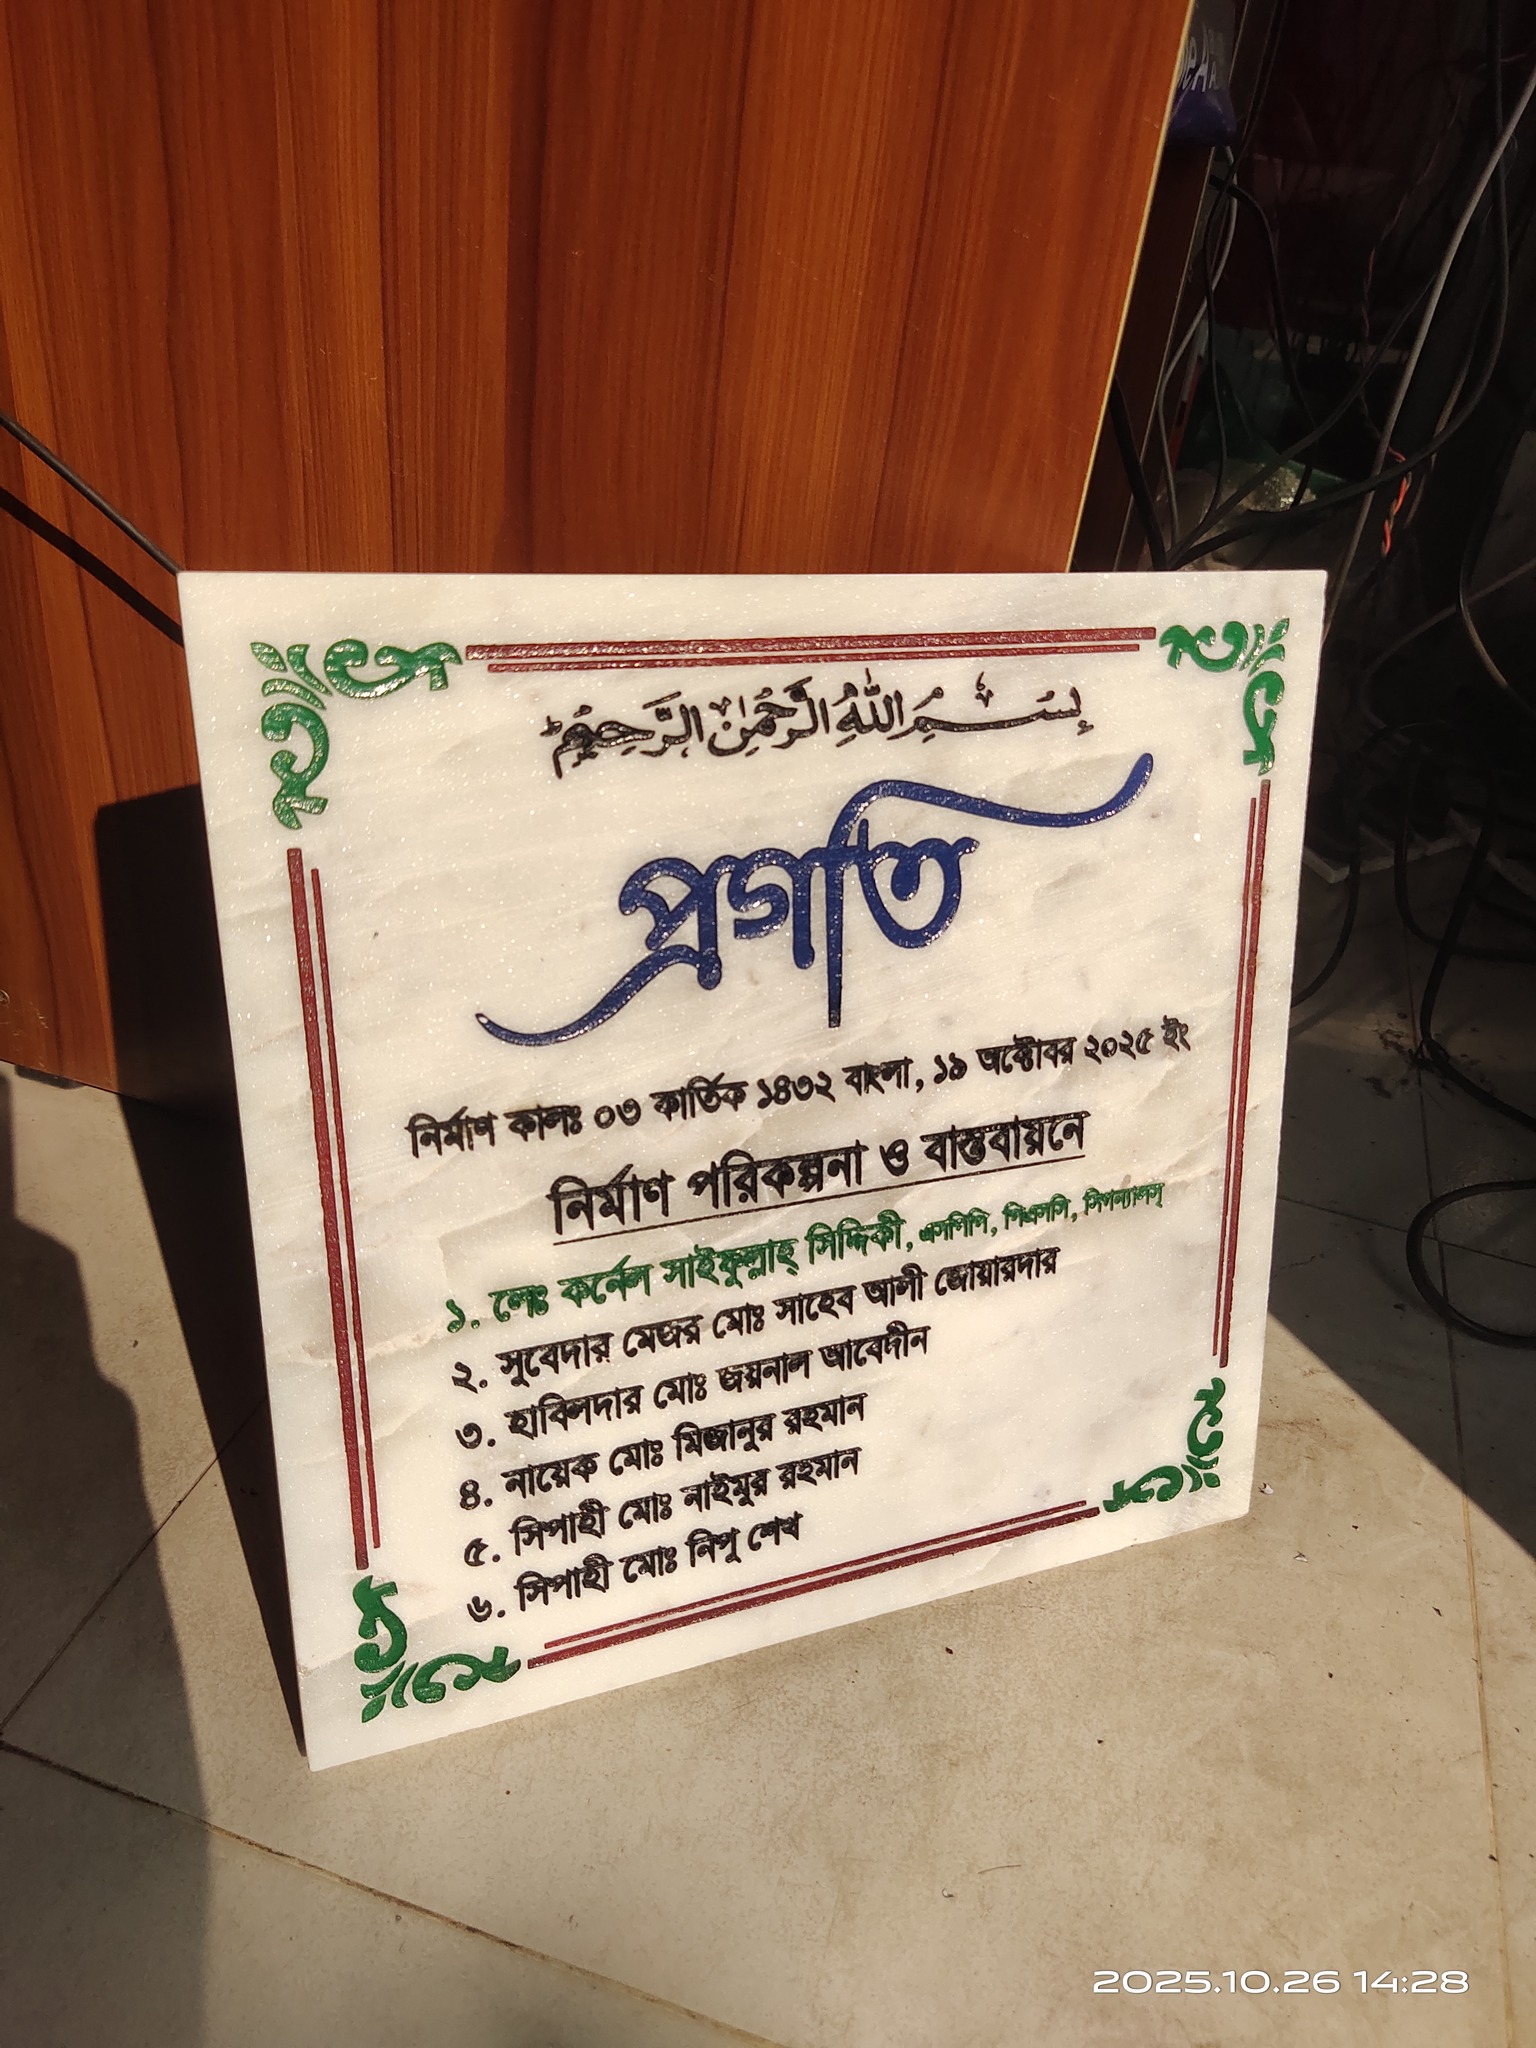 بِسْمِ اللهِ الرَّحْمٰنِ الرَّحِيْمِ
প্রগতি
নির্মাণ কালঃ ০৩ কার্তিক ১৪৩২ বাংলা, ১৯ অক্টোবর ২০২৫ ইং
নির্মাণ পরিকল্পনা ও বাস্তবায়নে
১. লেঃ কর্নেল সাইফুল্লাহ্ সিদ্দিকী, এসপিপি, পিএসসি, সিগন্যালস্
২. সুবেদার মেজর মোঃ সাহেব আলী জোয়ারদার
৩. হাবিলদার মোঃ জয়নাল আবেদীন
৪. নায়েক মোঃ মিজানুর রহমান
৫. সিপাহী মোঃ নাইমুর রহমান
৬. সিপাহী মোঃ নিপু শেখ
2025.10.26 14:28